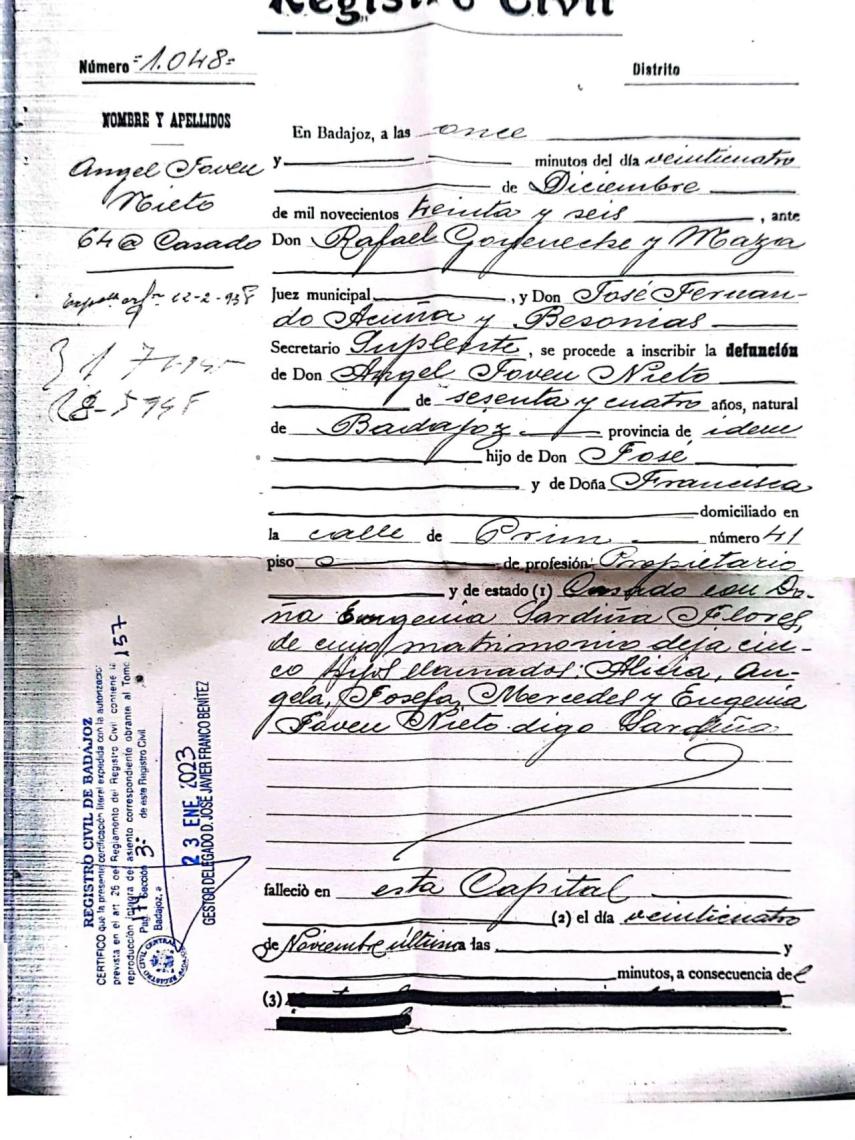 Registro Civil
Número =1.048=
Distrito
NOMBRE Y APELLIDOS
Angel Joven
Nieto
64 a Casado
12-2-938
En Badajoz, a las once
y minutos del día veinticuatro
de Diciembre
de mil novecientos treinta y seis , ante
Don Rafael Goyeneche y Mazia
Juez municipal , y Don José Fernan-
do Acuña y Besonias
Secretario Suplente, se procede a inscribir la defunción
de Don Angel Joven Nieto
de sesenta y cuatro años, natural
de Badajoz provincia de idem
hijo de Don José
y de Doña Francisca
domiciliado en
la calle de Prim número 41
piso de profesión Propietario
y de estado (1) Casado con Do-
ña Eugenia Sardiña Flores,
de cuyo matrimonio deja cin-
co hijos llamados: Alicia, An-
gela, Josefa, Mercedes y Eugenia
Joven Nieto digo Sardiña
falleció en esta Capital
(2) el día veinticuatro
de Noviembre último a las y
minutos, a consecuencia del
(3)
REGISTRO CIVIL DE BADAJOZ
CERTIFICO que la presente certificación literal expedida con la autorización
prevista en el art 26 del Reglamento del Registro Civil contiene la
reproducción íntegra del asiento correspondiente obrante al Tomo 157
Pag Sección 3ª de este Registro Civil
Badajoz, a
23 ENE. 2023
GESTOR DELEGADO D. JOSE JAVIER FRANCO BENÍTEZ